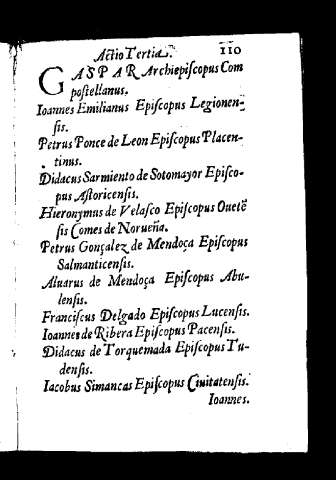 Actio Tertia. 110
GASPAR Archiepiſcopus Com
poſtellanus.
Ioannes Emilianus Epiſcopus Legionen-
ſis.
Petrus Ponce de Leon Epiſcopus Placen-
tinus.
Didacus Sarmiento de Sotomayor Epiſco-
pus Aſtoricenſis.
Hieronymus de Velaſco Epiſcopus Ouetẽ
ſis Comes de Norueña.
Petrus Gonçalez de Mendoça Epiſcopus
Salmanticenſis.
Aluarus de Mendoça Epiſcopus Abu-
lenſis.
Franciſcus Delgado Epiſcopus Lucenſis.
Ioannes de Ribera Epiſcopus Pacenſis.
Didacus de Torquemada Epiſcopus Tu-
denſis.
Iacobus Simancas Epiſcopus Ciuitatenſis.
Ioannes.